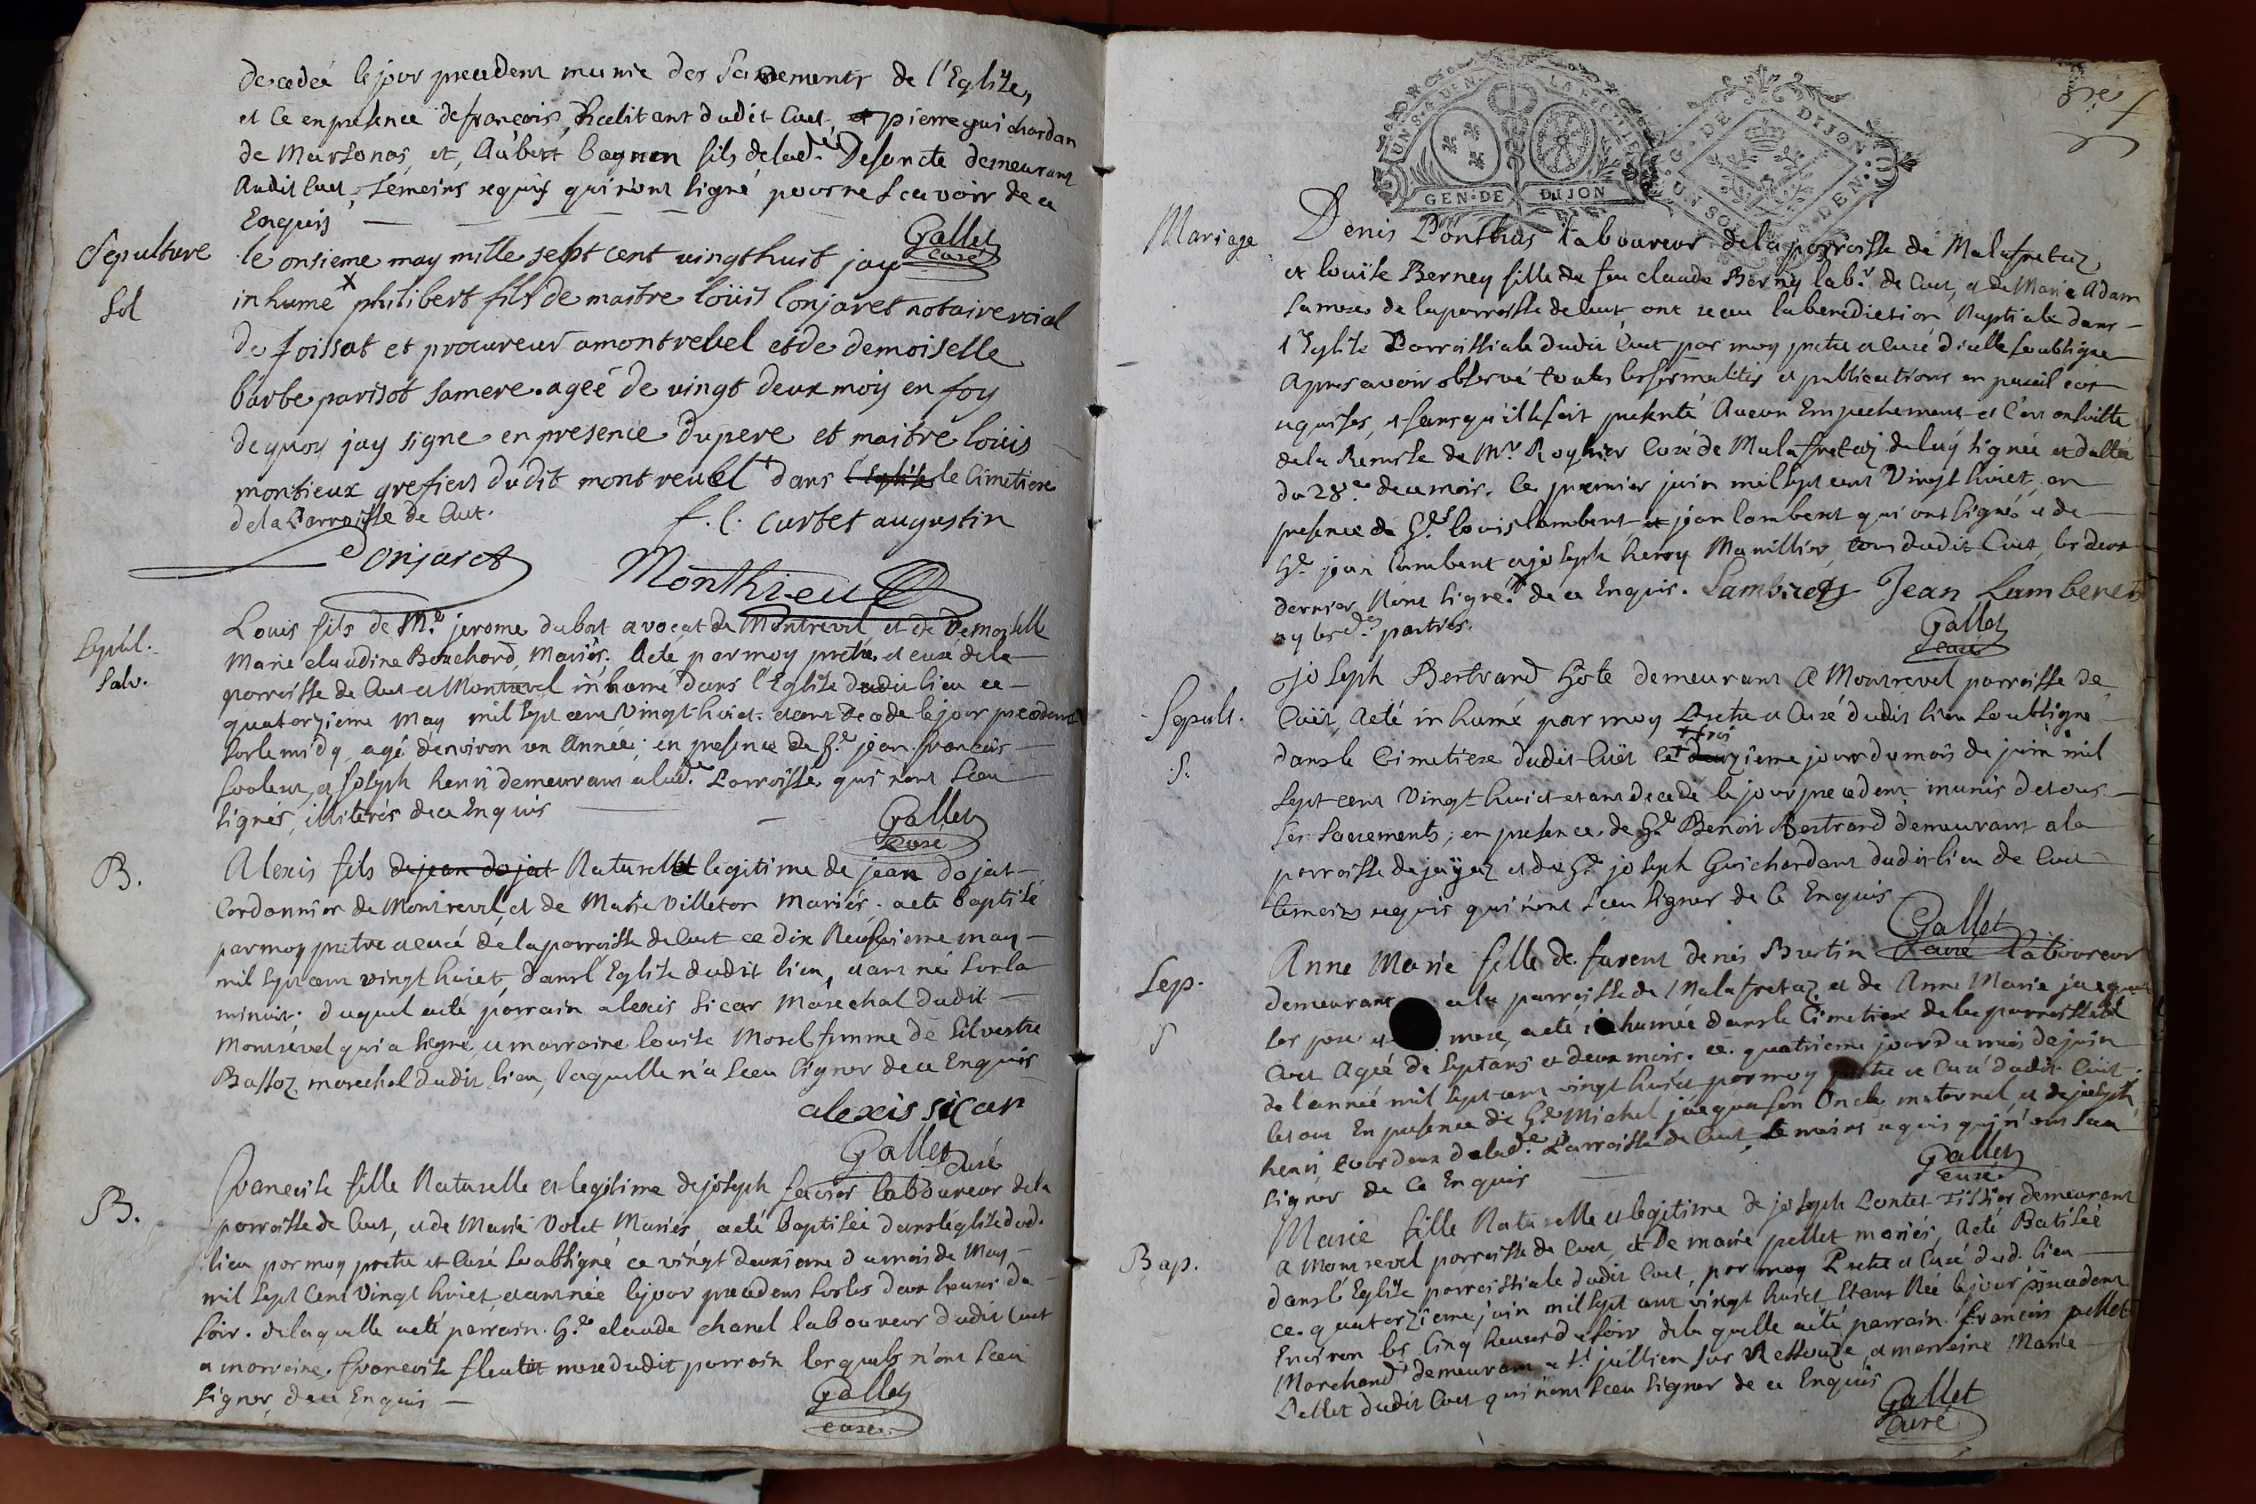 decedeé le jour precedent munie des Sacrements de l'Eglize,
et ce en presence de françois, habitant dudit Cuet, et pierre guichardan
de Marsonas, et, Aubert bagnon fils de lad. Defuncte demeurant
Audit Cuet, témoins requis qui n'ont signé pour ne scavoir de ce
Enquis
Gallet
curé
Sepulture
Sol
le onsieme may mille sept cent vingt huit jay
inhume philibert fils de maitre loüis lonjaret notaire roial
de foissat et procureur a montrevel et de demoiselle
barbe parisot sa mere. ageé de vingt deux mois en foy
de quoy jay signe en presence du pere et maitre loüis
montieux grefiers dudit montrevel dans l'Eglise le Cimetiere
de la Parroisse de Cuet.
f. l. curtet augustin
Lonjaret
Monthieu
Sepul.
Salv.
Louis fils de Mre jerome dubost avocat de Montrevel, et de Demoiselle
Marie claudine Bouchard, Mariés, a eté par moy pretre et curé de la
parroisse de Cuet et Montrevel inhumé dans l'Eglize dudit lieu ce
quatorzieme may mil sept cent vingt huict. etant decedé le jour precedent
sur le midy, agé d'environ un Année; en presence de Hte jean françois
, et joseph henri demeurant a lad. Parroisse qui n'ont sceu
signés, illiterés de ce Enquis
Gallet
curé
B.
Alexis fils de jean dojat Naturel et legitime de jean dojat
Cordonnier de Montrevel, et de Marie Villeton Mariés. a eté baptisé
par moy pretre et curé de la parroisse de Cuet ce dix Neufvieme may
mil sept cent vingt huict, dans l'Eglize dudit lieu, etant né sur la
minuit; duquel a eté parrain alexis sicar Marechal dudit
Montrevel qui a signé, et marraine louise Morel femme de Silvestre
Bassoz marechal dudit lieu, laquelle n'a sceu signer de ce Enquis
alexis sicar
Gallet curé
B.
francoise fille Naturelle et legitime de joseph favier laboureur de la
parroisse de Cuet, et de Marie Volet Mariés, a eté baptisée dans l'eglize dud.
lieu par moy pretre et Curé soubsigné ce vingt deuxieme du mois de May
mil sept Cent Vingt huict, etant née le jour precedent sur les deux heures du
soir. de laquelle a eté parrain. Hte claude chanel laboureur dudit Cuet
et marraine. francoise fleutet mere dudit parrain lesquels n'ont sceu
signer de ce Enquis
Gallet
curé
GEN·DE DIJON
G·DE DIJON
Mariage
Denis Ponthus laboureur de la parroisse de Malafretaz
et louïse Berney fille de feu claude Berney labr. de Cuet, et de Marie Adam
sa mere de la parroisse de Cuet ont receu la benediction Nuptiale dans
l'Eglize Parroissiale dudit Cuet par moy pretre et curé d'icelle soubsigné
apres avoir observé toutes les formalités et publications en pareil cas
requises, et sans qu'il se soit presenté Aucun Empechement et c'est ensuitte
de la Remise de Mr. Roghier Curé de Malafretaz de luy signée et dattée
du 28e. de ce mois. ce premier juin mil sept cent Vingt huict, en
presence de Hts louis lambert et jean lambert qui ont signé, et de
Hte jean lambert et joseph henry Manillier, tous dudit Cuet, les deux
dernier N'ont signé de ce Enquis. Lambert Jean Lamberet
ny les d. parties.
Gallet
curé
Sepult.
S.
Joseph Bertrand hote demeurant A Montrevel parroisse de
Cuët, a eté inhumé par moy Pretre et Curé dudit lieu soubsigné
dans le Cimetiere dudit Cuët le trois deuzieme jour du mois de juin mil
sept cent Vingt huict etant decedé le jour precedent, munis de tous
ses sacrements; en presence de Hte Benoit Bertrand demeurant a la
parroisse de jayaz et de Hte joseph Guichardant dudit lieu de Cuet
temoins requis qui n'ont sceu signer de Ce Enquis
Gallet
curé
Sep.
S
Anne Marie fille de furent denis Burtin laboureur
demeurant a la parroisse de Malafretaz et de Anne Marie jacquet
ses pere et mere, a eté inhumée dans le Cimetiere de la parroisse de
Cuet Ageé de sept ans et deux mois. ce. quatrieme jour du mois de juin
de l'année mil sept cent vingt huict par moy pretre et Curé dudit Cuet.
le tout En presence de Hte Michel jacquet son Oncle maternel, et de joseph
henri tous deux de lad. Parroisse de Cuet, temoins requis qui n'ont sceu
signer de Ce Enquis
Gallet
curé
Bap.
Marie fille Naturelle et legitime de joseph Pontet Tissier demeurant
A Montrevel parroisse de Cuet, et De marie pellet mariés, a eté Batisée
dans l'Eglize parroissiale dudit Cuet, par moy Pretre et Curé dud. lieu
ce. quatorzieme juin mil sept cent vingt huict Etant Née le jour precedent
Environ les Cinq heures du soir de la quelle a eté parrain. françois pellet
Marchand demeurant a St jullien sur Ressouze, et marreine Marie
Pellet dudit Cuet qui n'ont sceu signer de ce Enquis
Gallet
curé